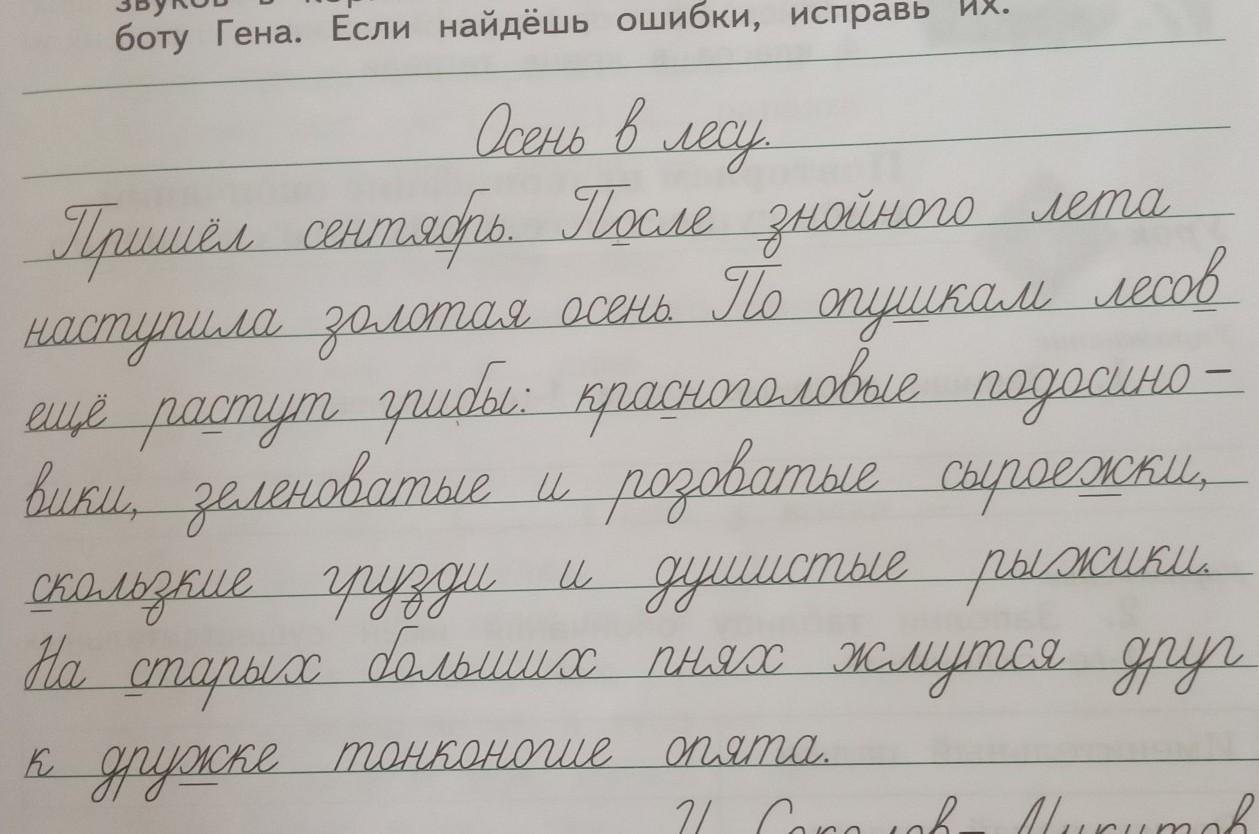 звуков в
боту Гена. Если найдёшь ошибки, исправь их.
Осень в лесу.
Пришёл сентябрь. После знойного лета
наступила золотая осень. По опушкам лесов
ещё растут грибы: красноголовые подосино-
вики, зеленоватые и розоватые сыроежки,
скользкие грузди и душистые рыжики.
На старых больших пнях жмутся друг
к дружке тонконогие опята.
И. Соколов-Микитов